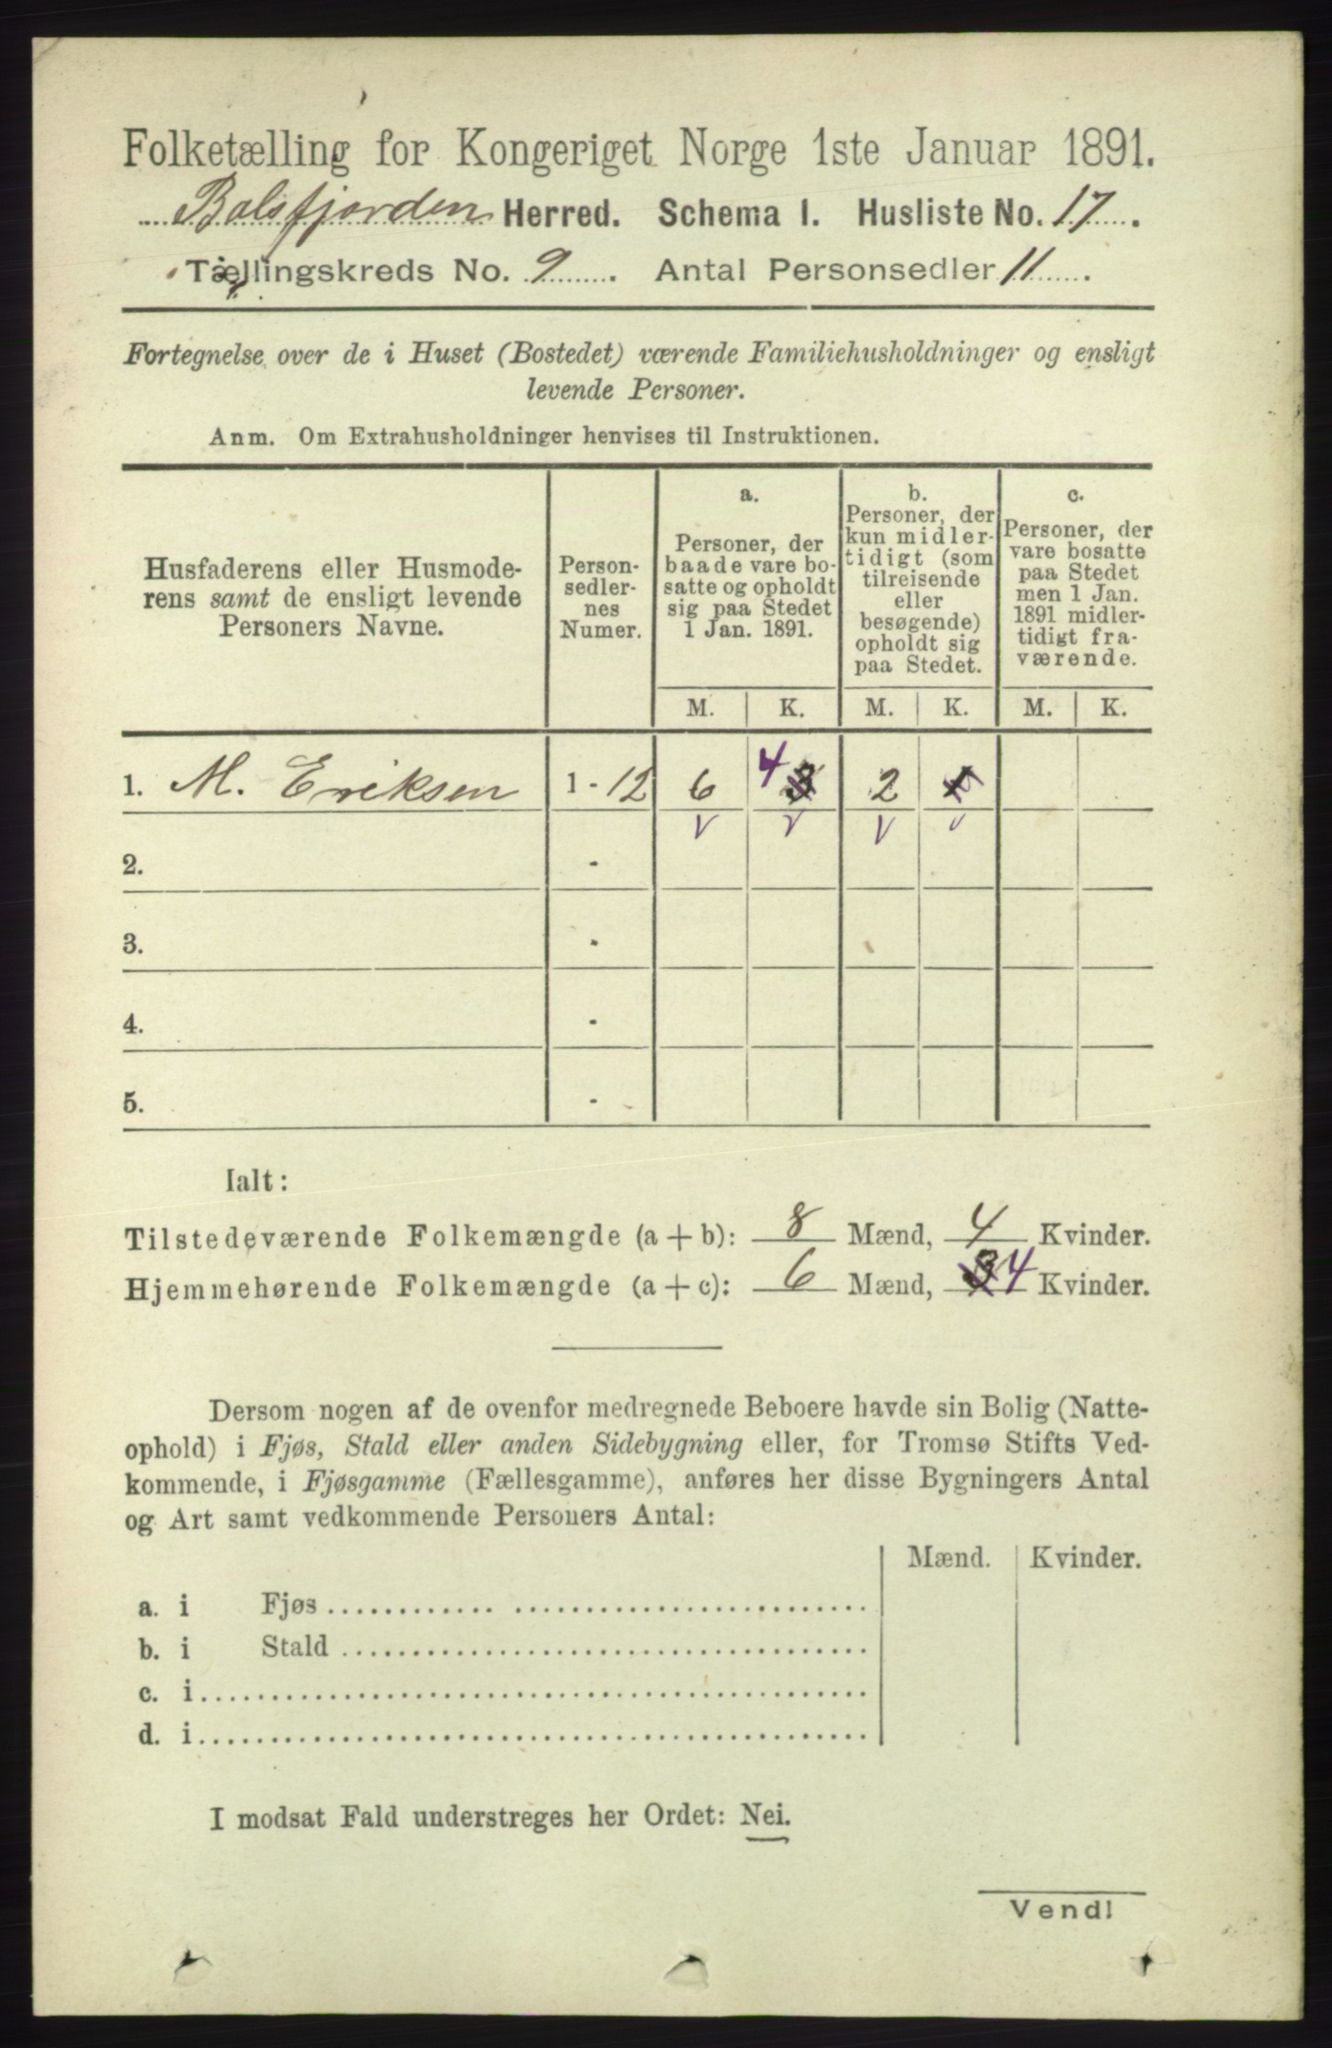 Folketælling for Kongeriget Norge 1ste Januar 1891.
Balsfjorden Herred. Schema I. Husliste No. 17.
Tællingskreds No. 9. Antal Personsedler 11.
Fortegnelse over de i Huset (Bostedet) værende Familiehusholdninger og ensligt
levende Personer.
Anm. Om Extrahusholdninger henvises til Instruktionen.
Husfaderens eller Husmode-
rens samt de ensligt levende
Personers Navne.
Person-
sedler-
nes
Numer.
a.
Personer, der
baade vare bo-
satte og opholdt
sig paa Stedet
1 Jan. 1891.
b.
Personer, der
kun midler-
tidigt (som
tilreisende
eller
besøgende)
opholdt sig
paa Stedet.
c.
Personer, der
vare bosatte
paa Stedet
men 1 Jan.
1891 midler-
tidigt fra-
værende.
M. K. M. K. M. K.
1. M. Eriksen 1 - 12 6 4 3 2 1
v v v v
2. -
3. -
4. -
5. -
Ialt:
Tilstedeværende Folkemængde (a + b): 8 Mænd, 4 Kvinder.
Hjemmehørende Folkemængde (a + c): 6 Mænd, 3 4 Kvinder.
Dersom nogen af de ovenfor medregnede Beboere havde sin Bolig (Natte-
ophold) i Fjøs, Stald eller anden Sidebygning eller, for Tromsø Stifts Ved-
kommende, i Fjøsgamme (Fællesgamme), anføres her disse Bygningers Antal
og Art samt vedkommende Personers Antal:
Mænd. Kvinder.
a. i Fjøs
b. i Stald
c. i
d. i
I modsat Fald understreges her Ordet: Nei.
Vend!